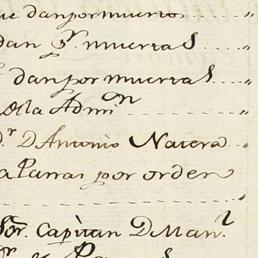 ue dan por muertos
dan Pr. muertas
dan por muertas
della Admon
dr. D Antonio Navera
a Parras por orden
Sor. Capitan D Manl